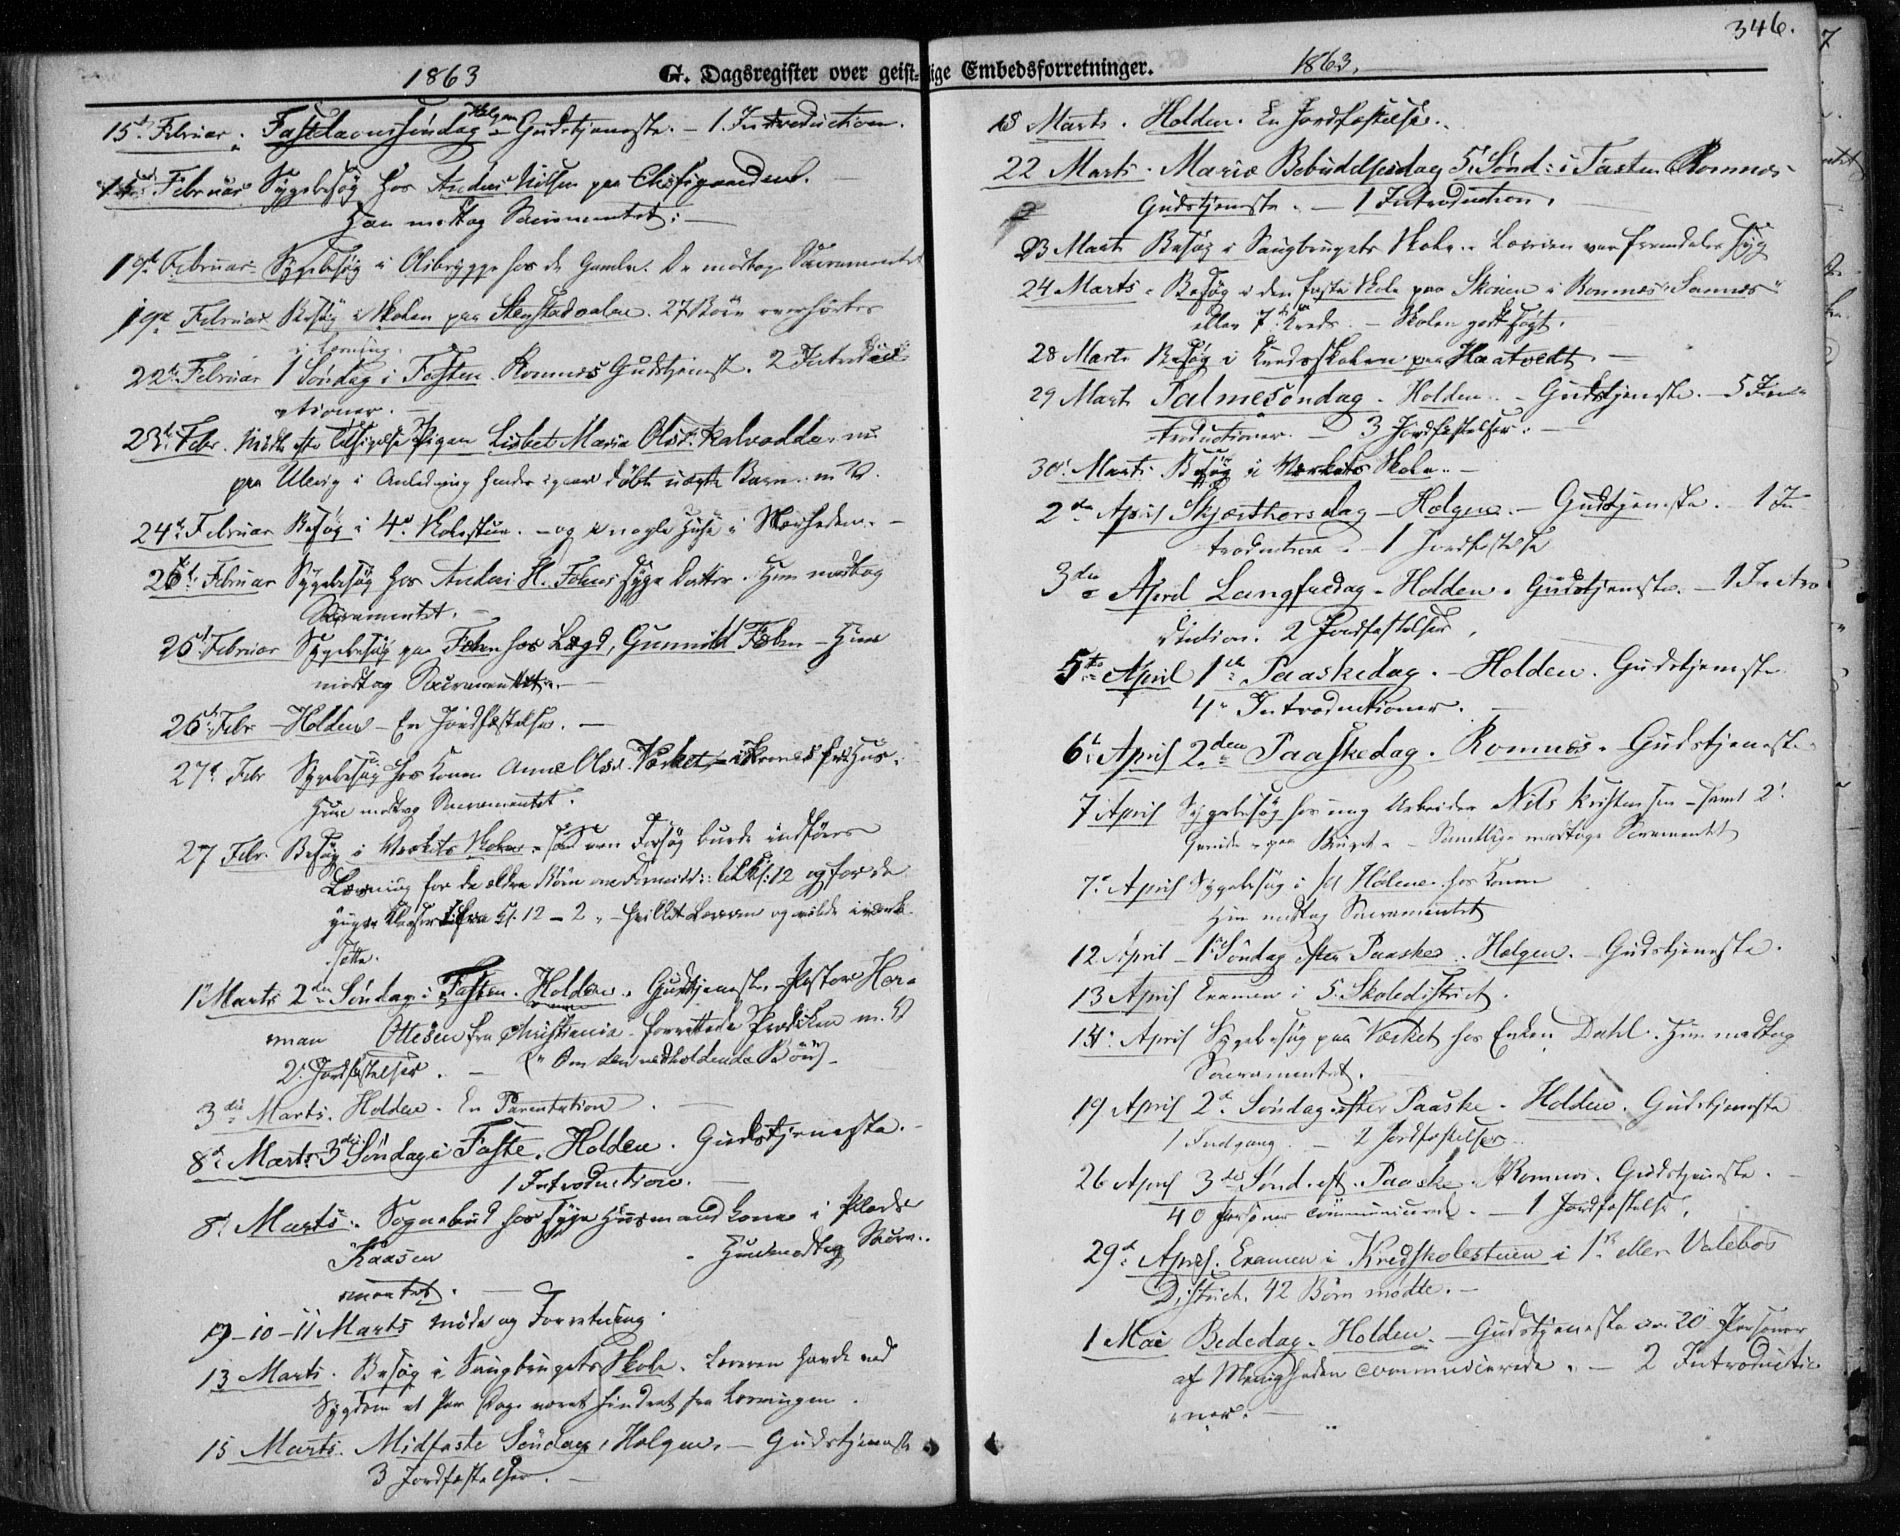 346.
1863
G. Dagsregister over geistlige Embedsforretninger.
1863.
15de Februar. Fastelavnssøndag Helgen Gudstjeneste. - 1. Introduction.
Februar Sygebesøg hos Anders Nilsen paa
Han modtog Sacramentet. -
19de Februar Sygebesøg i Olsbrygge hos de Gamle. De modtog Sacramentet
19de Februar Besøg i Skolen paa 27 Børn overhørtes
i Læsning.
22de Februar 1 Søndag i Fasten. Romnes Gudstjeneste. 2 Introdu-
ctioner. -
23de Febr. Mødte efter Tilsigelse Pigen Lisbet Maria Olsd. Kalvodden nu
paa Ulevig i Anledning hendes igaar døbte uægte Barn. m. V.
24de Februar Besøg i 4de Skolestue. - og i nogle Huse i Menigheden. -
26de Februar Sygebesøg hos Anders H. Fehns syge Datter. Hun modtog
Sacramentet. -
26de Februar Sygebesøg paa Fehn hos Lægd, Gunnild Fehn - Hun
modtog Sacramentet. -
26de Febr - Holden - En Jordfæstelse. -
27de Febr Sygebesøg hos Konen Anne Olsd. Værket - Hus.
Hun modtog Sacramentet.
27 Febr. Besøg i Værkets Skole. - Forsøg burde indføres
Læsning for de ældre Børn om Formidd: til Kl: 12 og for de
yngre Klasser fra Kl. 12 - 2, - hvilket Læreren og vilde iværk-
sætte.
1ste Marts 2den Søndag i Fasten. Holden. Gudstjeneste. - Pastor Her-
man Ottesen fra Christiania forrettede Prædiken m. V
2de Jordfæstelser. - (" Om den vedholdende Bøn) -
3die Marts. Holden. En Parentation. -
8de Marts 3die Søndag i Faste. Holden. Gudstjeneste. -
1 Introduction. -
8de Marts. Sognebud hos syge Husmandkone i Pladse
Kaasen - Hun modtog Sacra-
mentet. -
9 - 10 - 11 Marts Møde og Forretning.
13 Marts. Besøg i Saugbrugets Skole. Læreren havde ved
Sygdom et Par Dage været hindret fra Læsningen.
15 Marts. Midfaste Søndag, Helgen. - Gudstjeneste
3 Jordfæstelser. -
18 Marts. Holden. En Jordfæstelse.
22 Marts. Mariæ Bebudelsesdag 5te Sønd: i Fasten Romnes
Gudstjeneste. - 1 Introduction.
23 Marts Besøg i Saugbrugets Skole. Læreren var fremdeles syg
24 Marts. Besøg i den faste Skole paa Skoien i Romnes Sannes
eller 7de Kreds. - Skolen godt søgt.
28 Marts Besøg i Kredsskolen paa Haatvedt. -
29 Marts Palmesøndag. Holden. - Gudstjeneste. - 5 In-
troductioner. - 3 Jordfæstelser. -
30te Marts. Besøg i Værkets Skole. -
2den April Skjærthorsdag - Helgen. - Gudstjeneste. - 1 In-
troduction. - 1 Jordfæstelse
3die April Langfredag - Holden. Gudstjeneste. - 1 Intro-
duction. 2 Jordfæstelser.
5te April 1ste Paaskedag. - Holden. Gudstjeneste
4 Introductioner. -
6te April 2den Paaskedag. Romnes. Gudstjeneste.
7 April Sygebesøg hos ung Arbeider Nils Kristensen - samt 2
paa Bruget. - Samtlige modtoge Sacramentet
7de April Sygebesøg i Holene hos Konen
Hun modtog Sacramentet
12 April - 1ste Søndag efter Paaske. Helgen. - Gudstjeneste.
13 April Examen i 5. Skoledistrict.
14de April Sygebesøg paa Værket hos Enken Dahl. Hun modtog
Sacramentet.
19 April 2den Søndag efter Paaske - Holden. Gudstjeneste
1 Indgang. - 2 Jordfæstelser.
26 April 3die Sønd. eft. Paaske. Romnes. Gudstjeneste. -
40 Personer communicerede. - 1 Jordfæstelse.
29de April. Examen i Kredsskolestuen i 1ste eller Valebøs
District. 42 Børn mødte. -
1 Mai Bededag. Holden. - Gudstjeneste 20 Personer
af Menigheden communicerede. - 2 Introductio-
ner. -